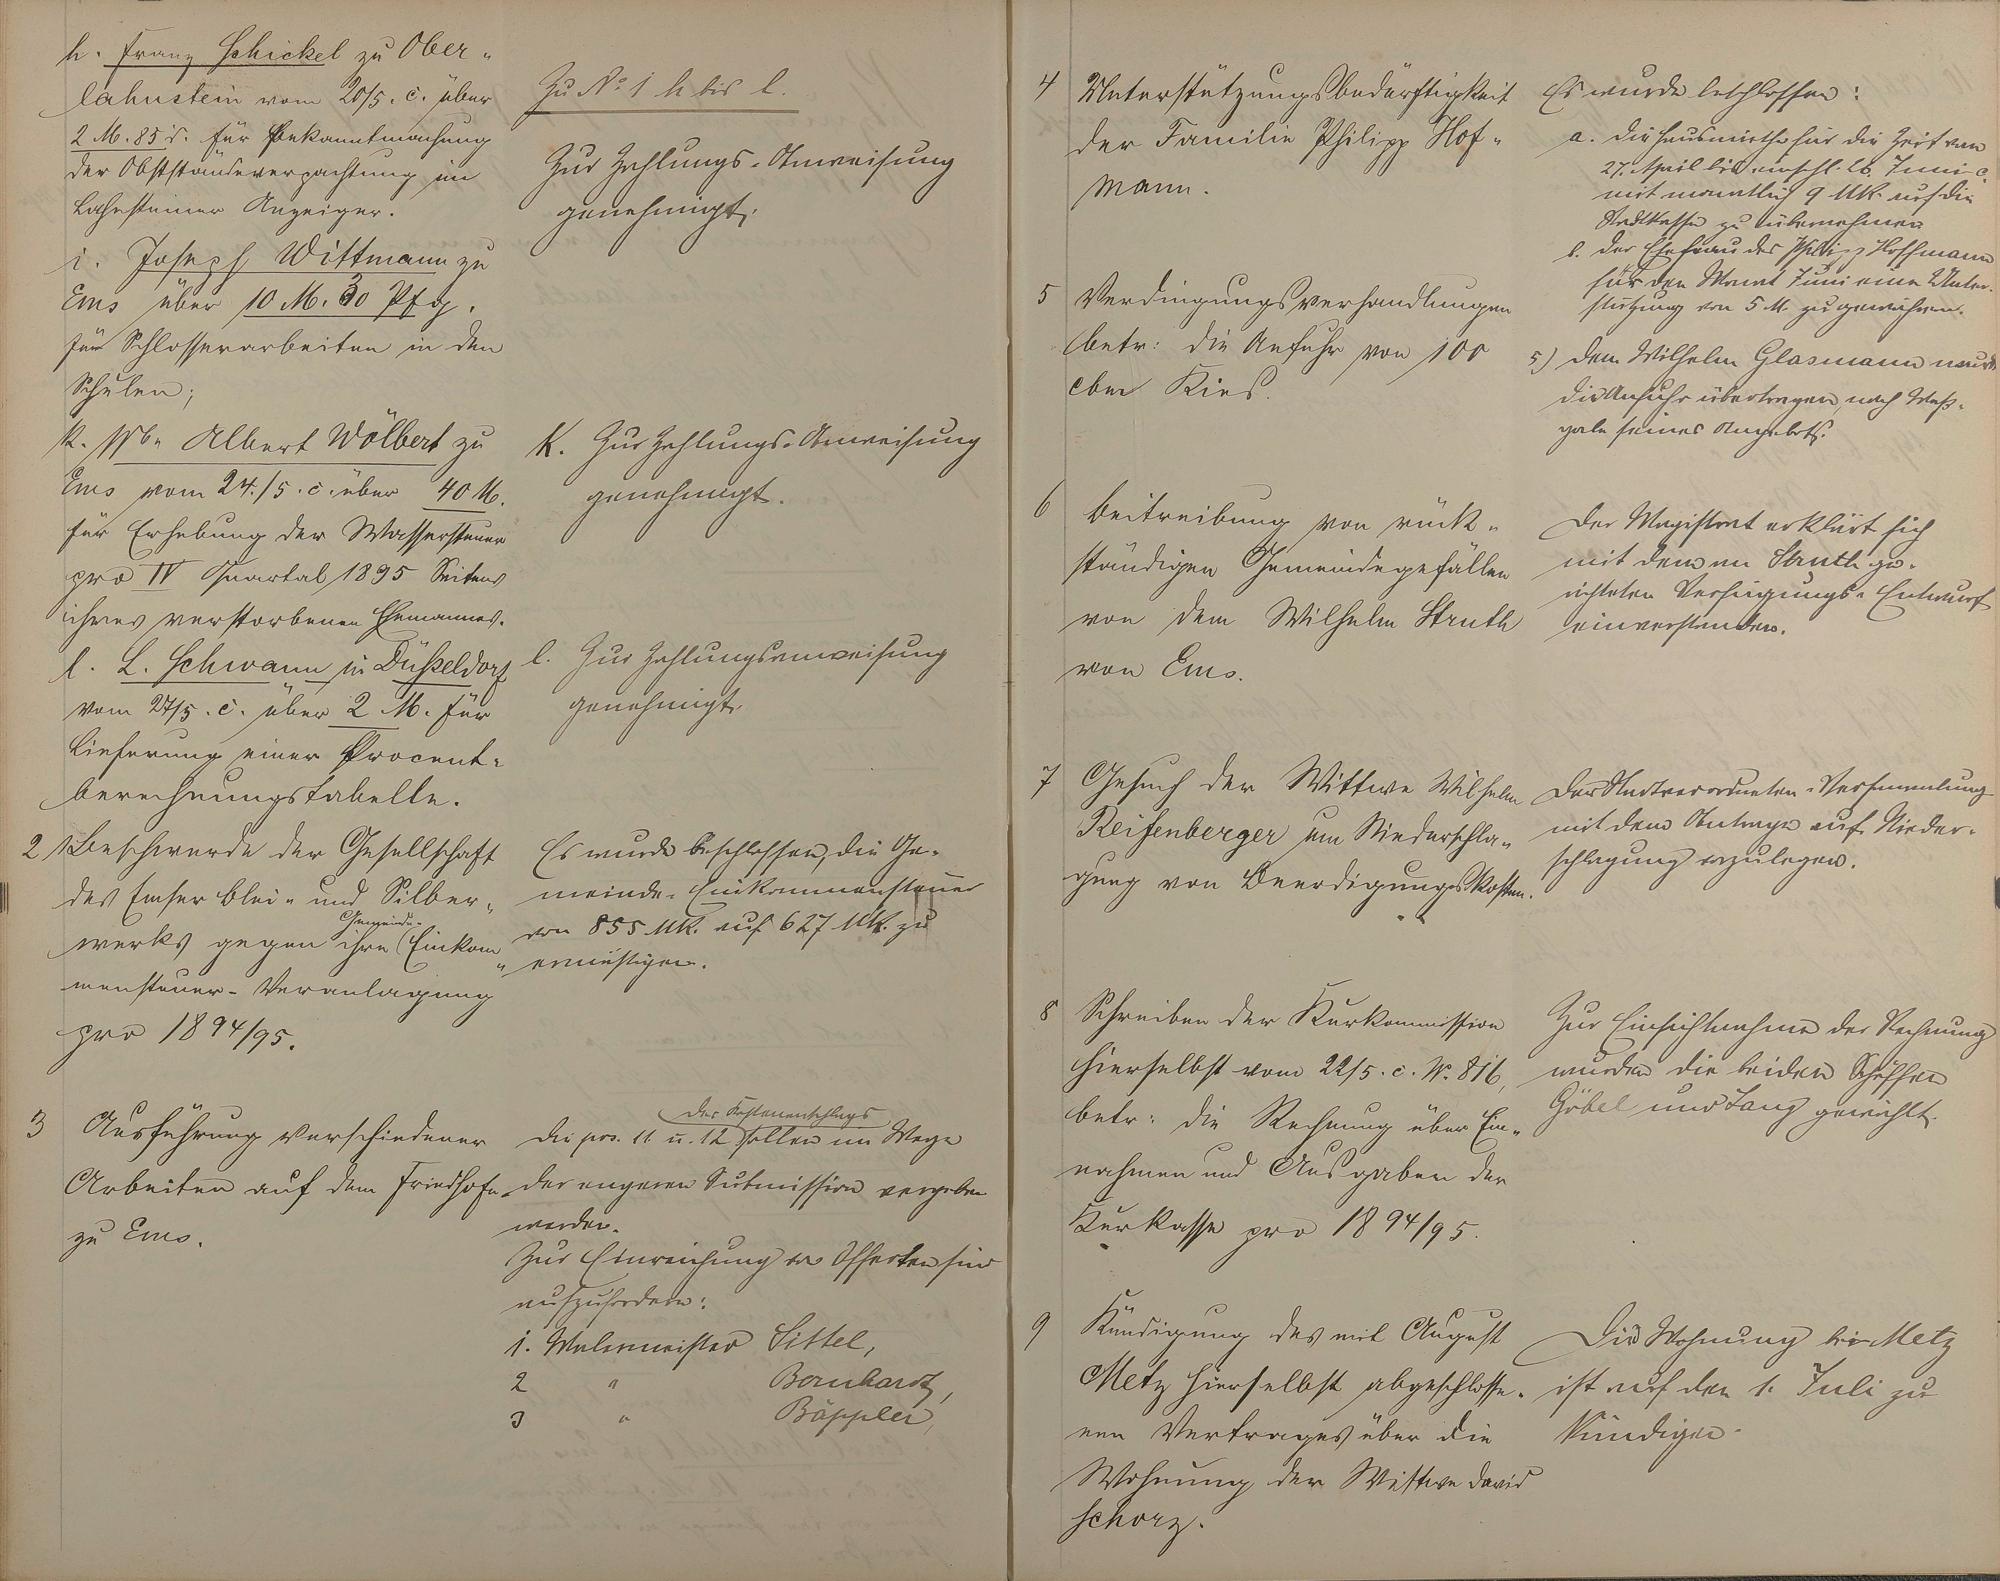 h. Franz Schickel zu Ober-
lahnstein vom 20/5. c. über
2 M. 85 d. für Bekanntmachung
der Obstständeverpachtung im
Lahnsteiner Anzeiger.
i. Joseph Wittmann zu
Ems über 10 M. 30 Pfg.
für Schlosserarbeiten in den
Schulen;
k. Wwe Albert Wölbert zu
Ems vom 24./5. c. über 40 M.
für Erhebung der Wassersteuer
pro IV Quartal 1895 Seitens
ihres verstorbenen Ehemannes.
l. L. Schwann in Düsseldorf
vom 27/5. c. über 2 M. für
Lieferung einer Procent-
berechnungstabelle.
Zu No 1 h bis l.
Zur Zahlungs-Anweisung
genehmigt.
K. Zur Zahlungs-Anweisung
genehmigt.
l. Zur Zahlungsanweisung
genehmigt.
2 Beschwerde der Gesellschaft
des Emser Blei- und Silber-
werks gegen ihre Gemeinde-Einkom-
mensteuer-Veranlagung
pro 1894/95.
Es wurde beschlossen, die Ge-
meinde-Einkommensteuer
von 855 Mk. auf 627 Mk. zu
ermäßigen.
3 Ausführung verschiedener
Arbeiten auf dem Friedhofe
zu Ems.
Die pos. 11 u. 12 des Kostenanschlags sollen im Wege
der engeren Submission vergeben
werden.
Zur Einreichung von Offerten sind
aufzufordern:
1. Malermeister Sittel,
2 " Bernhardt,
3 " Bäppler,
4 Unterstützungsbedürftigkeit
der Familie Philipp Hof-
mann.
Es wurde beschlossen:
a. die Hausmiethe für die Zeit vom
27. April bis einschl. 26. Juni c.
mit monatlich 9 Mk. auf die
Stadtkasse zu übernehmen
b. der Ehefrau des Philipp Hoffmann
für den Monat Juni eine Unter-
stützung von 5 M. zu gewähren.
5 Verdingungsverhandlungen
betr: die Anfuhr von 100
cbm Kies.
5) Dem Wilhelm Glasmann wurde
die Anfuhr übertragen, nach Maß-
gabe seines Angebots.
6 Beitreibung von rück-
ständigen Gemeindegefällen
von dem Wilhelm Struth
von Ems.
Der Magistrat erklärt sich
mit dem an Struth ge-
richteten Verfügungs-Entwurf
einverstanden.
7 Gesuch der Wittwe Wilhelm
Reifenberger um Niederschla-
gung von Beerdigungskosten.
Der Stadtverordneten-Versammlung
mit dem Antrage auf Nieder-
schlagung vorzulegen.
8 Schreiben der Kurkommission
hierselbst vom 22/5. c. N. 816,
betr: die Rechnung über Ein-
nahmen und Ausgaben der
Kurkasse pro 1894/95.
Zur Einsichtnahme der Rechnung
wurden die beiden Schöffen
Göbel und Lang gewählt.
9 Kündigung des mit August
Metz hierselbst abgeschlosse-
nen Vertrages über die
Wohnung der Wittwe David
Schorz.
Die Wohnung bei Metz
ist auf den 1. Juli zu
kündigen.